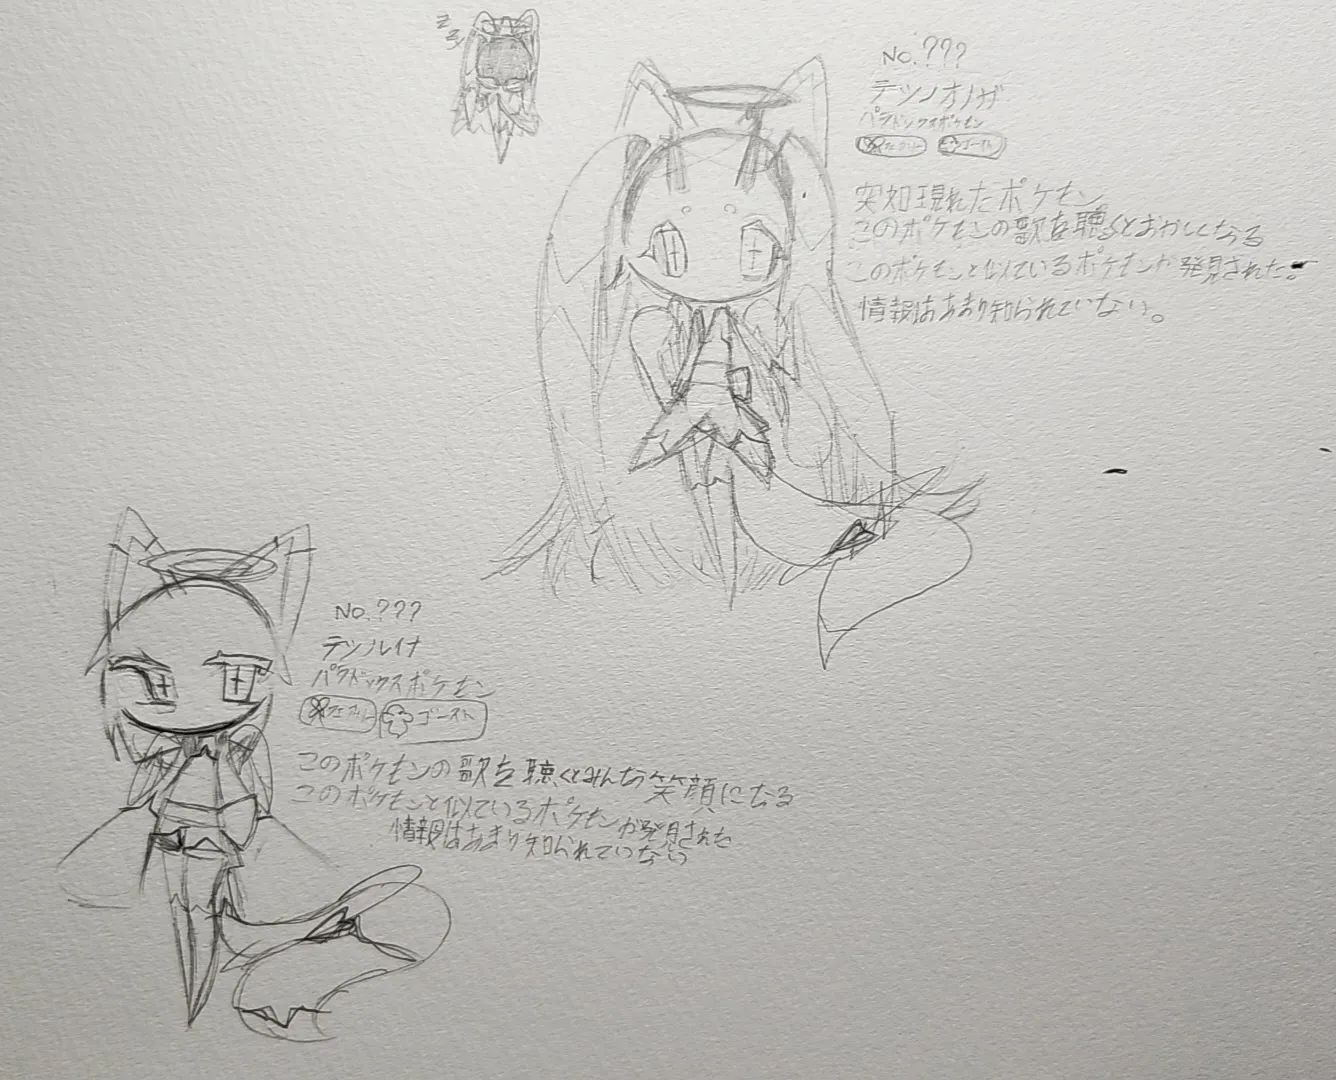 No.???
テツノオノガ
パラドックスポケモン
フェアリー ゴースト
突如現れたポケモン
このポケモンの歌を聴くとおかしくなる
このポケモンと似ているポケモンが発見された。
情報はあまり知られていない。
No.???
テツノルイナ
パラドックスポケモン
フェアリー ゴースト
このポケモンの歌を聴くとみんな笑顔になる
このポケモンと似ているポケモンが発見された
情報はあまり知られていない